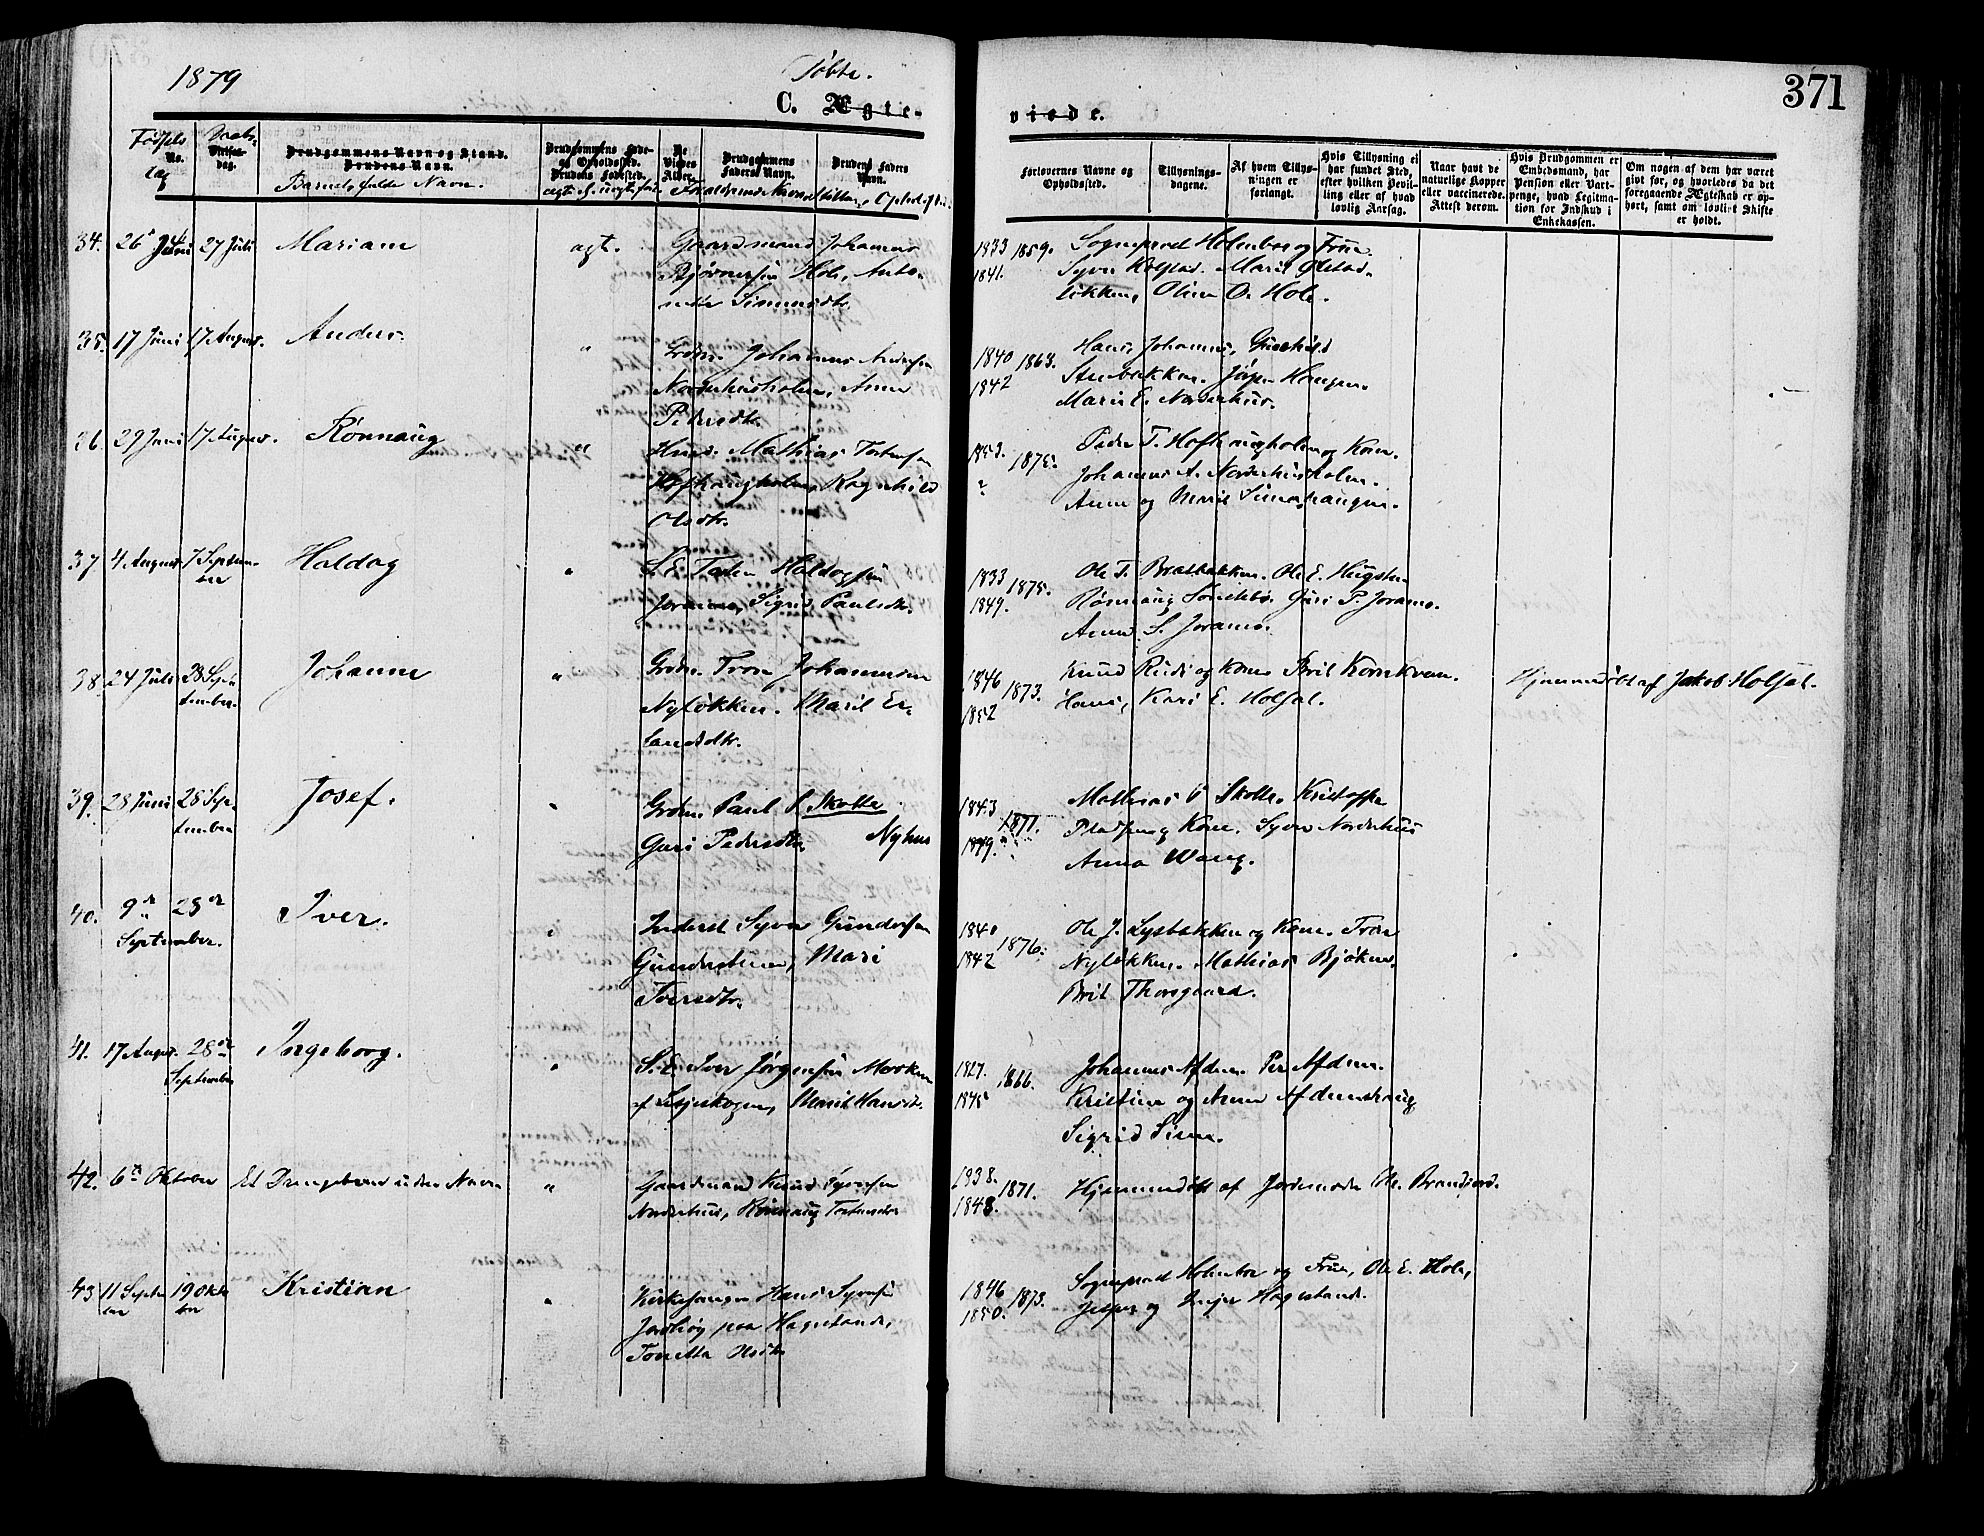 1879
Døbte.
371
C. Ægte-
viede.
Fødsels
No.
Dag
Daabs-
Vielses-
dag.
Brudgommens Navn og Stand.
Brudens Navn.
Barnets fulde Navn.
Brudgommens Føde-
og Opholdssted.
Brudens Fødested.
De
Viedes
Alder.
Brudgommens
Faders Navn.
Brudens Faders
Navn.
Forlovernes Navne og
Opholdssted.
Tillysnings-
dagene.
Af hvem Tillys-
ningen er
forlangt.
Hvis Tillysning ei
har fundet Sted,
efter hvilken Bevil-
ling eller af hvad
lovlig Aarsag.
Naar havt de
naturlige Kopper
eller vaccinerede.
Attest derom.
Hvis Brudgommen er
Embedsmand, har
Pension eller Vart-
penge, hvad Legitima-
tion for Indskud i
Enkekassen.
Om nogen af dem har været
gift før, og hvorledes da det
foregaaende Ægteskab er op-
hørt, samt om lovligt Skifte
er holdt.
34. 26 Juni 27 Juli Mariam ægt. Gaardmand Johannes
Bjørnersen Hole, Anto-
nette Simensdtr.
1833 1859. Sogneprest Holmboe og Frue
1841. Syver Kolstad. Marit Ølstad-
løkken, Oline O. Hole.
35. 17 Juni 17 August. Anders. " Grdm. Johannes Andersen
Norderhusholen, Anne
Pedersdtr.
1840 1863. Hans, Johannes, Gunhild
1842 Stubakken. Jørgen Haugen.
Marie E. Norderhus.
36. 29 Juni 17 August. Rønnaug " Husm. Mathias Torstensen
Hofhaugholen, Ragnhild
Olsdtr.
1853. 1875. Peder T. Hofhaugholen og Kone.
" Johannes A. Norderhusholen.
Anne og Marit Simenhaugen.
37 4 August 7 Septem-
ber Haldog " S.E. Torsten Haldogsen
Joramo, Sigrid Paulsdtr.
1833 1875. Ole T. Bratbakken. Ole E. Hugsten
1849. Rønnaug Sondebø. Guri P. Joramo.
Anne S. Joramo.
38 24 Juli 28 Sep-
tember. Johanne " Grdm. Tron Johannesen
Nyløkken. Marit Er-
landsdtr.
1846 1873. Knud Ruste og Kone Brit Kornkveen.
1852 Hans, Kari E. Holsal.
Hjemmedøbt af Jakob Holsal.
39. 28 Juni 28 Sep-
tember Josef. " Grdm. Paul P. Skotte
Guri Pedersdtr. Nyhus
1843 1871. Mathias P Skotte. Kristoffer
1849. og Kone. Syver Norderhus
Anna Wang.
40. 9de 28de
September. Iver. " Inderst Syver Gundersen
Gunderstuen, Mari
Iversdtr.
1840 1876. Ole J. Lysbakken og Kone. Tron
1842 Nyløkken. Mathias Bjøkne.
Brit Thorsgaard.
41. 17 August. 28de
September Ingeborg. " S.E. Iver Jørgensen Morken
af Lesjeskogen, Marit Hansdtr.
1827. 1866. Johannes Afdem. Per Afdem.
1845 Kristine og Anne Afdemshaug
Sigrid
42. 6te Oktober Et Drengebarn uden Navn " Gaardmand Knud Syversen
Norderhus, Rønnaug Torstensdtr
1838. 1871. Hjemmedøbt af Jordmoder Ch. Brandsord.
1848.
43 11 Septem-
ber 19 Okto-
ber Kristian " Kirkesanger Hans Syversen
Jordhøy paa Hagestande,
Tonetta Olsdtr.
1846 1873. Sogneprest Holmboe og Frue, Ole E. Hole,
1850. Jesper og Hagestande.